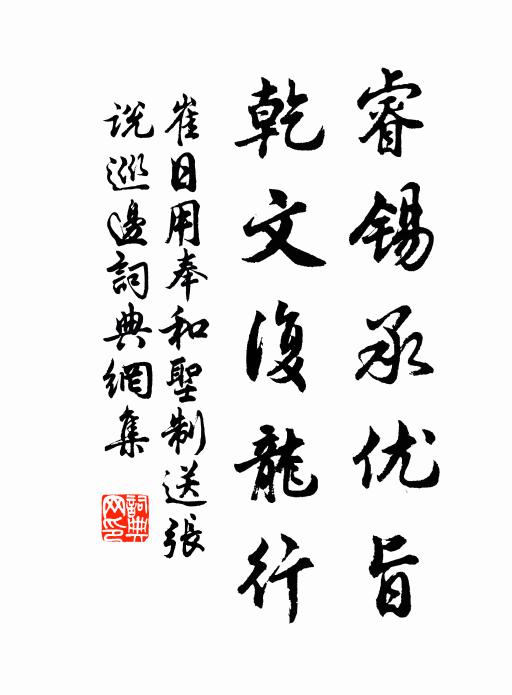 睿锡承优旨
乾文復龍行
崔日用奉和聖制送張
説巡邊詞典網集
詞典
网印